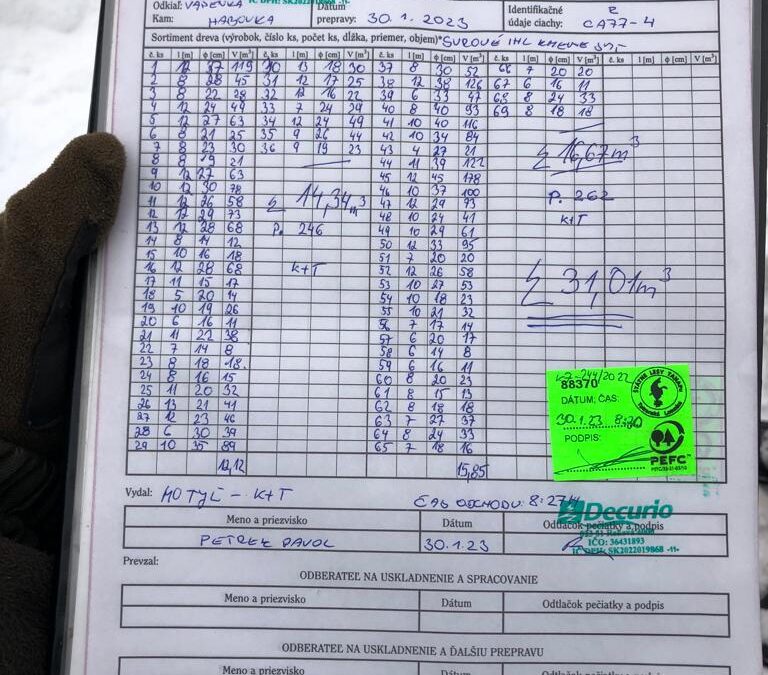 Odkiaľ: VAPENKA
Dátum
Identifikačné
Kam: HABOVKA
prepravy: 30.1.2023
údaje ciachy: CA77-4
Sortiment dreva (výrobok, číslo ks, počet ks, dĺžka, priemer, objem)* SUROVÉ IHL KMENE
č. ks l [m] ϕ [cm] V [m³] č. ks l [m] ϕ [cm] V [m³] č. ks l [m] ϕ [cm] V [m³] č. ks l [m] ϕ [cm] V [m³] č. ks l [m] ϕ [cm] V [m³] č. ks l [m] ϕ [cm] V [m³]
1 12 37 119 30 13 18 30 37 8 30 52 66 7 20 20
2 8 28 45 31 12 17 25 38 12 38 126 67 6 16 11
3 8 22 28 32 12 16 22 39 6 33 47 68 8 24 33
4 12 24 49 33 7 24 29 40 8 40 93 69 8 18 18
5 12 27 63 34 12 24 49 41 10 40 116
6 8 21 25 35 9 26 44 42 10 34 84
7 8 23 30 36 9 19 23 43 4 27 21 Σ 16,67 m³
8 8 19 21 44 11 39 122
9 12 27 63 45 12 45 178
10 12 30 78 46 10 37 100 P. 262
11 12 26 58 Σ 14,34 m³ 47 12 29 73
12 12 29 73 48 10 24 41 K+T
13 12 28 68 P. 246 49 10 29 61
14 8 14 12 50 12 33 95
15 10 16 18 51 7 20 20
16 12 28 68 K+T 52 12 26 58 Σ 31,01 m³
17 11 15 17 53 10 27 53
18 5 20 14 54 10 18 23
19 10 19 26 55 10 21 32
20 6 16 11 56 7 17 14
21 11 22 38 57 6 20 17
22 7 14 8 58 6 14 8
23 8 18 18 59 6 16 11
24 8 16 15 60 8 20 23
25 11 20 32 61 8 15 13
26 13 21 41 62 8 18 18
27 12 23 46 63 7 27 37
28 6 30 39 64 8 24 33
29 10 35 89 65 7 18 16
12,12 15,85
244/2022
88370
DÁTUM, ČAS:
30.1.23 8:20
PODPIS:
ŠTÁTNE LESY TANAPU
PEFC
Vydal: MOTYĽ - K+T
ČAS ODCHODU: 8:27
Decurio
Meno a priezvisko Dátum Odtlačok pečiatky a podpis
PETREK PAVOL 30.1.23
IČO: 36431893
IČ DPH: SK2022019868 -11-
Prevzal:
ODBERATEĽ NA USKLADNENIE A SPRACOVANIE
Meno a priezvisko Dátum Odtlačok pečiatky a podpis
ODBERATEĽ NA USKLADNENIE A ĎALŠIU PREPRAVU
Meno a priezvisko Dátum Odtlačok pečiatky a podpis